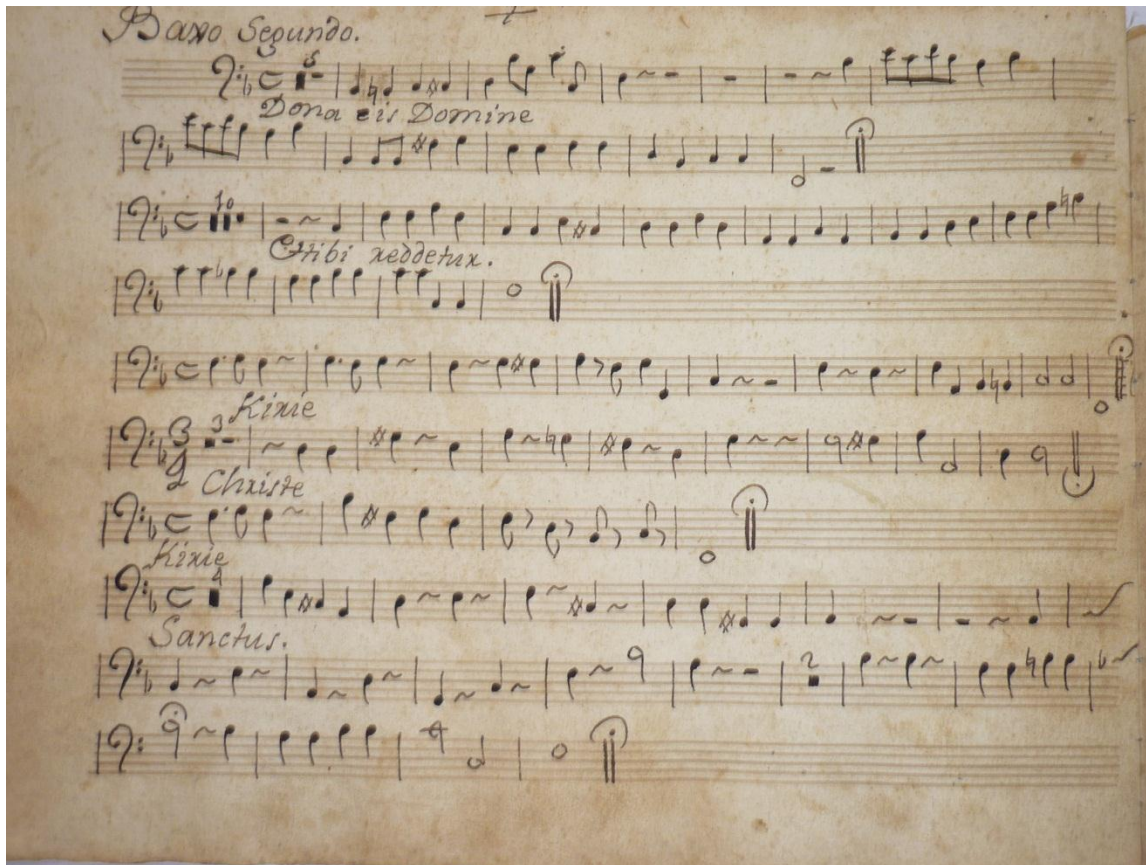 Baxo Segundo.
5
Dona eis Domine
10
Et tibi reddetur.
Kirie
3
3
2
Christe
Kirie
4
Sanctus.
2